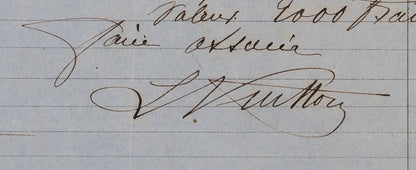 Valeur 2000 fran
Paire associa
L. Vuitton